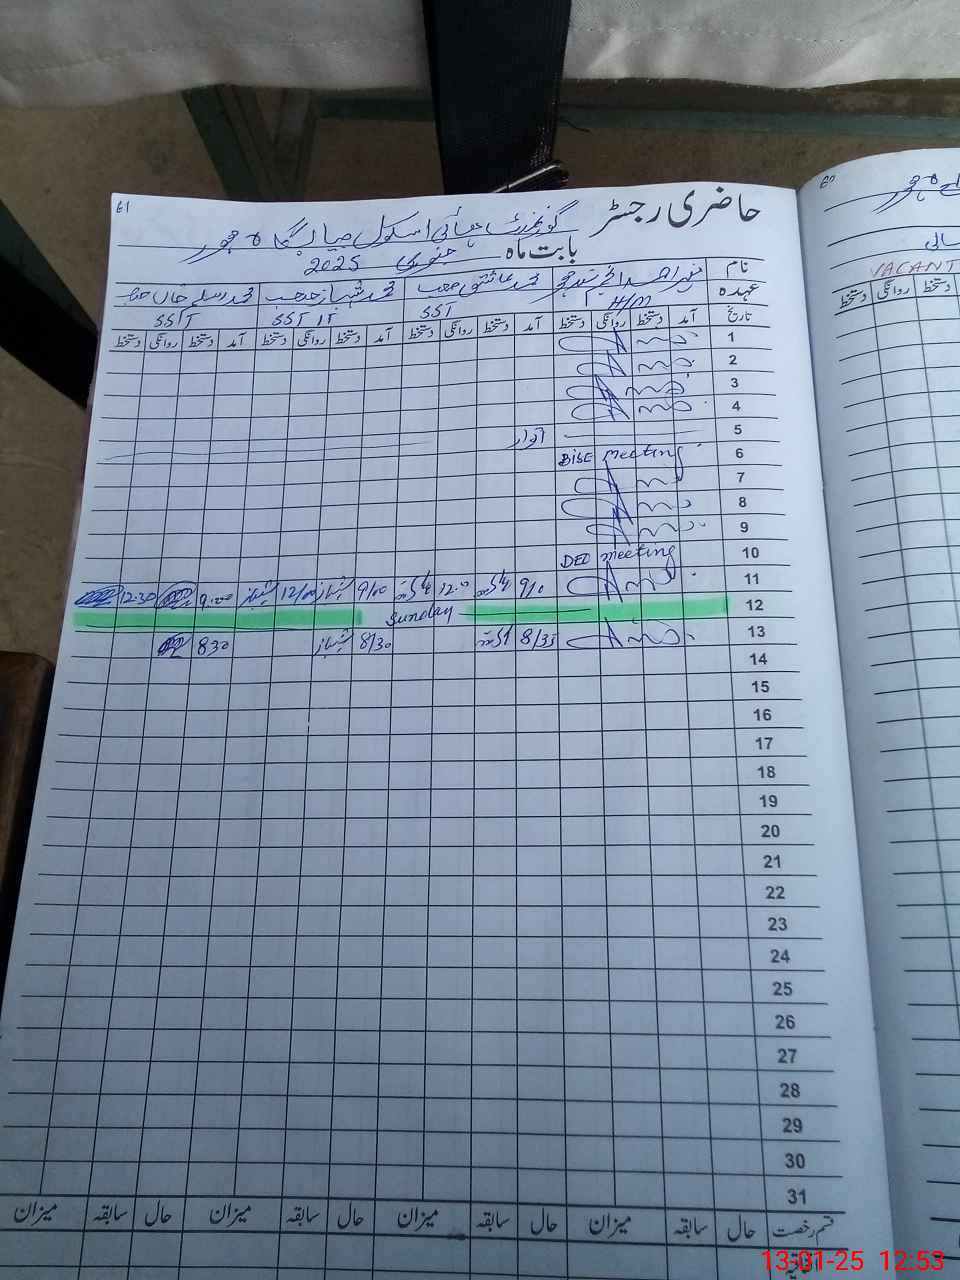 61
حاضری رجسٹر گورنمنٹ ہائی اسکول
بابت ماہ جنوری 2025
نام محمد عاشق صاحب محمد شہباز صاحب محمد اسلم خان صاحب
عہدہ H/M SST SST IT SST
تاریخ آمد دستخط روانگی دستخط آمد دستخط روانگی دستخط آمد دستخط روانگی دستخط آمد دستخط روانگی دستخط
1
2
3
4
5 اتوار
6 BISE meeting
7
8
9
10 DEO meeting
11 9/10 12.00 9/00 شہباز 12/00 شہباز 9:00 12.30
12 Sunday
13 8/35 8/30 شہباز 830
14
15
16
17
18
19
20
21
22
23
24
25
26
27
28
29
30
31
قسم رخصت حال سابقہ میزان حال سابقہ میزان حال سابقہ میزان حال سابقہ میزان
VACANT
دستخط روانگی دستخط
13-01-25 12:53